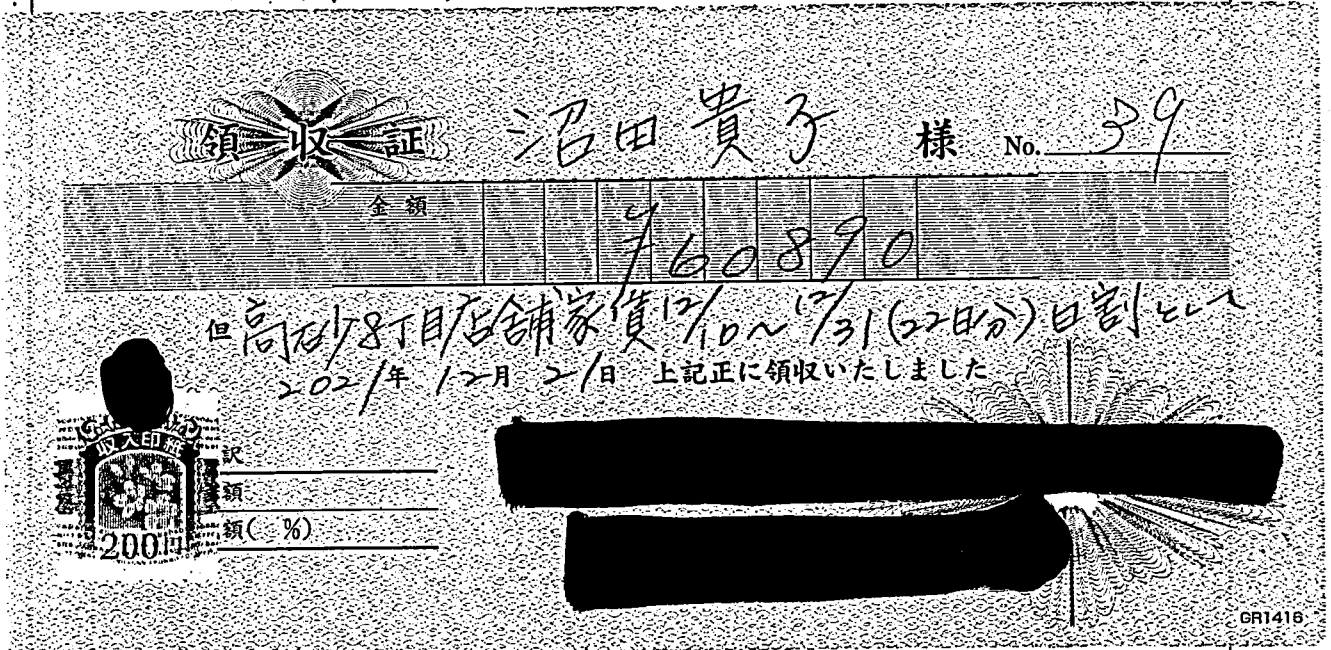 領収証 沼田貴子 様 No. 39
金額 ¥60890
但 高砂8丁目店舗家賃12/10～12/31(22日分)日割として
2021年 12月 21日 上記正に領収いたしました
収入印紙
訳
額
額( %)
200円
GR1416